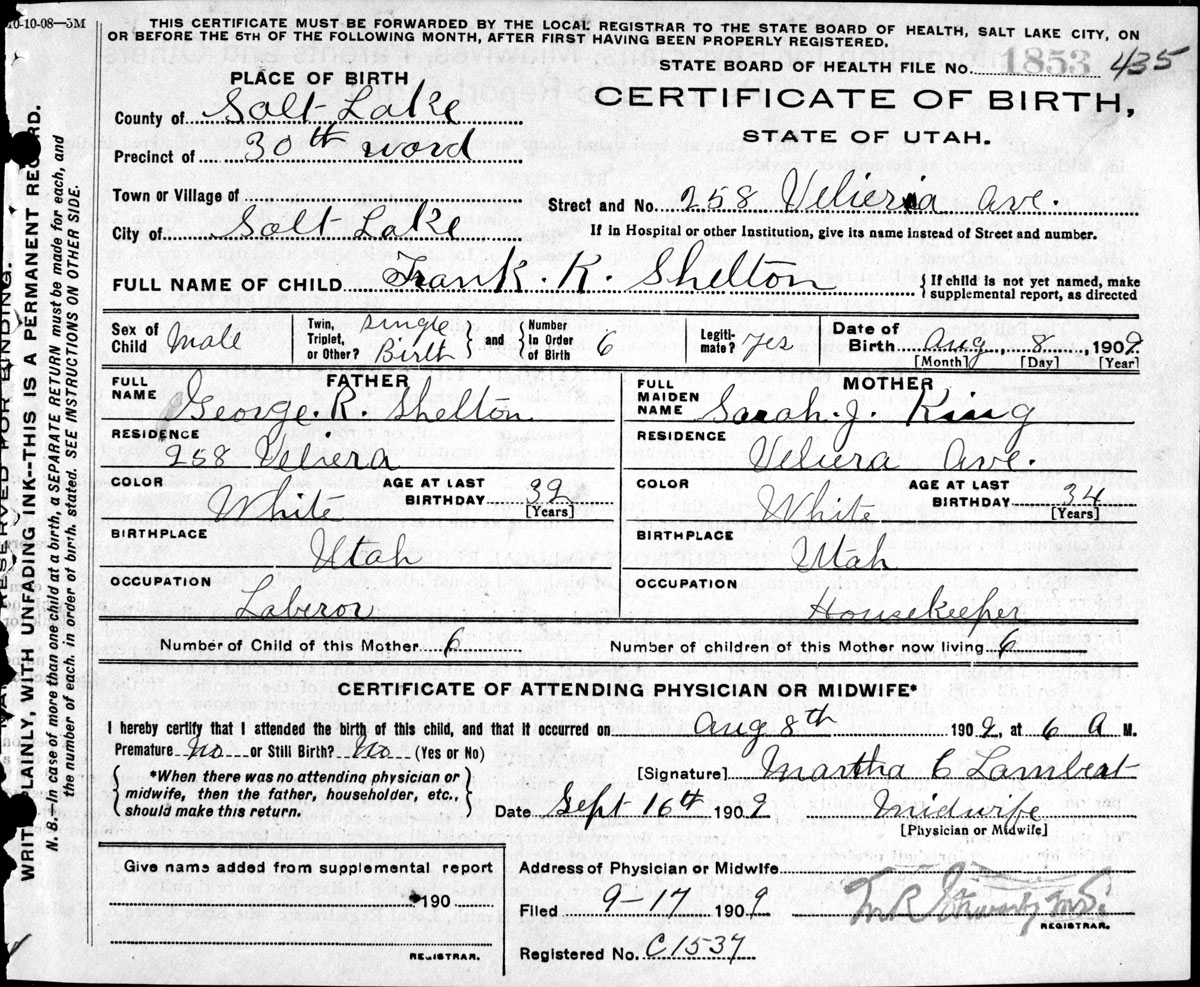 10-10-08—5M
THIS CERTIFICATE MUST BE FORWARDED BY THE LOCAL REGISTRAR TO THE STATE BOARD OF HEALTH, SALT LAKE CITY, ON
OR BEFORE THE 5TH OF THE FOLLOWING MONTH, AFTER FIRST HAVING BEEN PROPERLY REGISTERED.
STATE BOARD OF HEALTH FILE No. 1853 435
PLACE OF BIRTH
CERTIFICATE OF BIRTH,
STATE OF UTAH.
County of Salt Lake
Precinct of 30th word
Town or Village of
Street and No. 258 Ave.
City of Salt Lake
If in Hospital or other Institution, give its name instead of Street and number.
FULL NAME OF CHILD Frank. K. Shelton
{ If child is not yet named, make
supplemental report, as directed
Sex of Child Male
Twin, Triplet, or Other? Single Birth } and { Number In Order of Birth 6
Legitimate? Yes
Date of Birth Aug, 8, 1909
[Month] [Day] [Year]
FATHER
FULL NAME George. R. Shelton
RESIDENCE
258
COLOR White
AGE AT LAST BIRTHDAY 32 [Years]
BIRTHPLACE
Utah
OCCUPATION
Laberor
MOTHER
FULL MAIDEN NAME Sarah. J. King
RESIDENCE
Ave.
COLOR White
AGE AT LAST BIRTHDAY 34 [Years]
BIRTHPLACE
Utah
OCCUPATION
Housekeeper
Number of Child of this Mother 6
Number of children of this Mother now living 6
CERTIFICATE OF ATTENDING PHYSICIAN OR MIDWIFE*
I hereby certify that I attended the birth of this child, and that it occurred on Aug 8th 1909, at 6 A M.
Premature No or Still Birth? No (Yes or No)
{ *When there was no attending physician or
midwife, then the father, householder, etc.,
should make this return. }
[Signature] Martha C Lambert
Date Sept 16th 1909 Midwife
[Physician or Midwife]
Give name added from supplemental report
190
REGISTRAR.
Address of Physician or Midwife
Filed 9-17 1909
REGISTRAR.
Registered No. C1537
RESERVED FOR BINDING.
WRITE PLAINLY, WITH UNFADING INK--THIS IS A PERMANENT RECORD.
N. B.—In case of more than one child at a birth, a SEPARATE RETURN must be made for each, and
the number of each, in order of birth, stated. SEE INSTRUCTIONS ON OTHER SIDE.